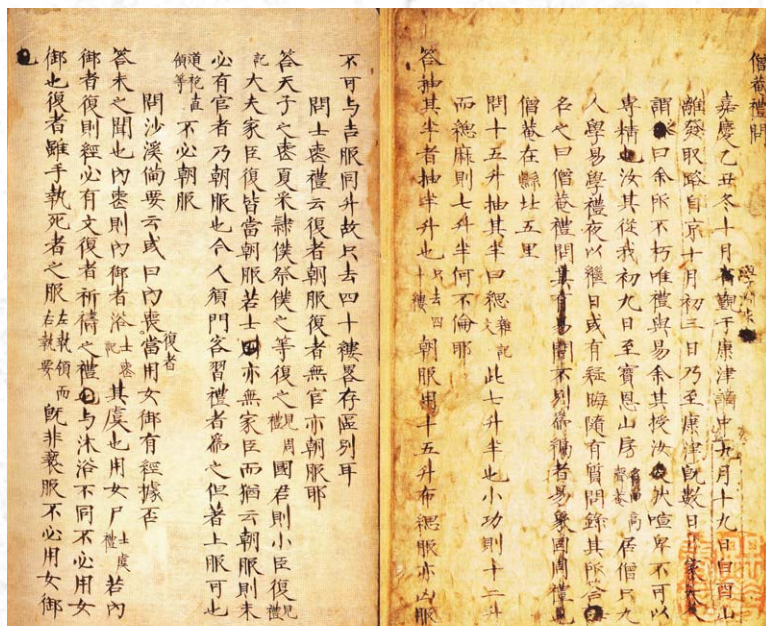 僧菴禮問
嘉慶乙丑冬十月學淵來覲于康津謫中九月十九日自酉山
離發取路自京十月初三日乃至康津旣數日家大人
謂曰余所不朽唯禮與易余其授汝然喧卑不可以
專精也汝其從我初九日至寶恩山房名曰高聲菴居僧只九
人學易學禮夜以繼日或有疑晦隨有質問錄其所答
名之曰僧菴禮問其有易問不別爲編者易象固周禮也
僧菴在縣北五里
問十五升抽其半曰緦雜記文此七升半也小功則十二升
而緦麻則七升半何不倫耶
答抽其半者抽半升也只去四十縷朝服用十五升布緦服亦凶服
不可与吉服同升故只去四十縷畧存區別耳
問士喪禮云復者朝服復者無官亦朝服耶
答天子之喪夏采隷僕祭僕之等復之見周禮國君則小臣復見禮
記大夫家臣復皆當朝服若士亦無家臣而猶云朝服則未
必有官者乃朝服也今人須門客習禮者爲之但著上服可也
道袍直領等不必朝服
問沙溪備要云或曰內喪復者當用女御有經據否
答未之聞也內喪則內御者浴士喪記其虞也用女尸士虞禮若內
御者復則經必有文復者祈禱之禮与沐浴不同不必用女
御也復者雖手執死者之服左執領而右執要旣非褻服不必用女御
也